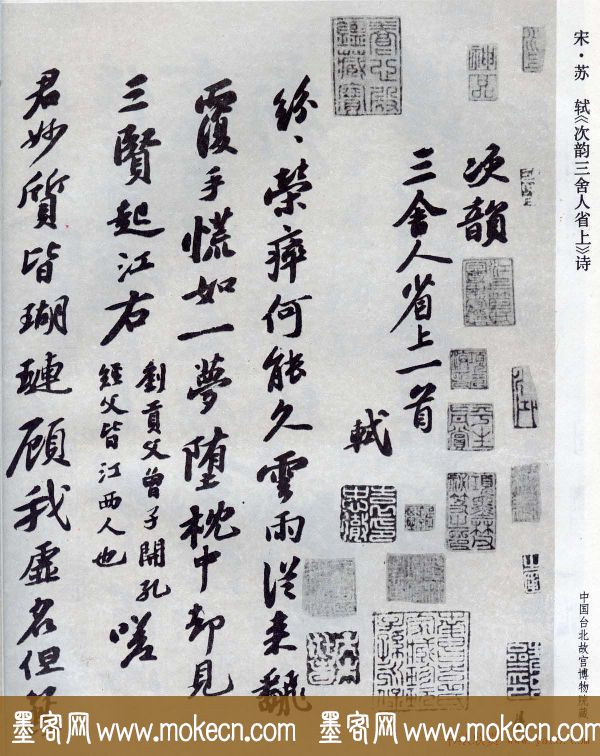 宋·苏 轼《次韵三舍人省上》诗
中国台北故宫博物院藏
神品
養心殿鑑藏寶
平生真賞
項墨林父秘笈之印
次韻
三舍人省上一首
軾
紛〻榮瘁何能久雲雨從來翻
覆手慌如一夢墮枕中却見
三賢起江右
劉貢父曾子開孔
經父皆江西人也
嗟
君妙質皆瑚璉顧我虛名但
墨客网 www.mokecn.com 墨客网 www.mokecn.com